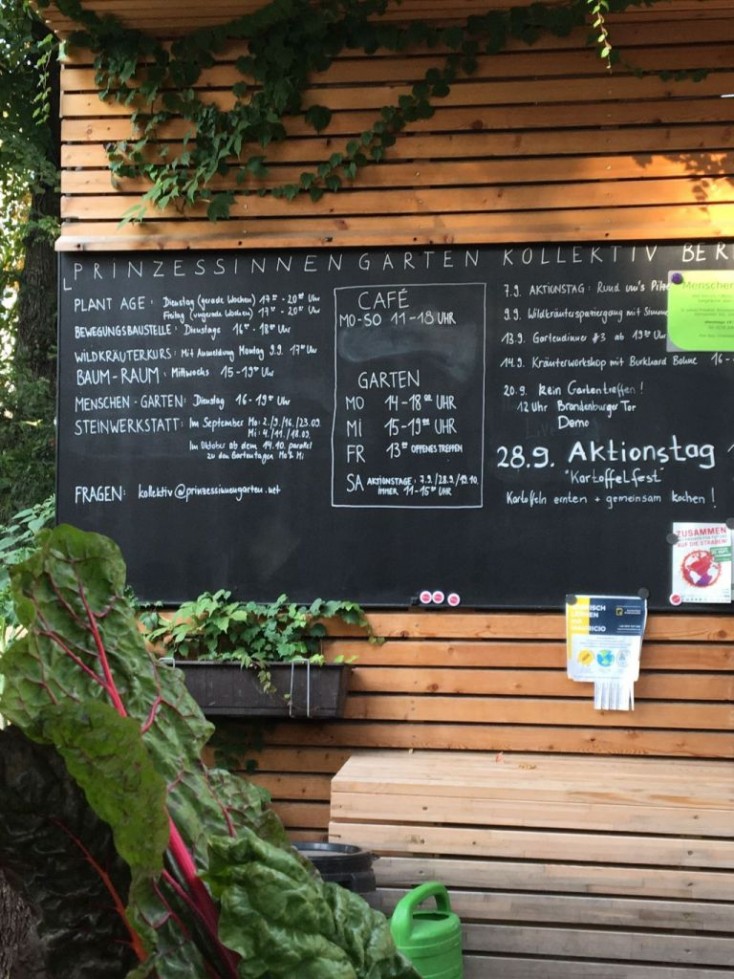 PRINZESSINNENGARTEN KOLLEKTIV BER
PLANT AGE: Dienstag (gerade Wochen) 17⁰⁰ - 20⁰⁰ Uhr
Freitag (ungerade Wochen) 17⁰⁰ - 20⁰⁰ Uhr
BEWEGUNGSBAUSTELLE: Dienstags 16⁰⁰ - 18⁰⁰ Uhr
WILDKRÄUTERKURS: Mit Anmeldung Montag 9.9. 17⁰⁰ Uhr
BAUM-RAUM: Mittwochs 15-19⁰⁰ Uhr
MENSCHEN-GARTEN: Dienstag 16-19⁰⁰ Uhr
STEINWERKSTATT: Im September Mo: 2./9./16./23.09.
Mi: 4./11./18.09.
Im Oktober ab dem 14.10. parallel
zu den Gartentagen Mo & Mi
FRAGEN: kollektiv@prinzessinnengarten.net
CAFÉ
MO-SO 11-18 UHR
GARTEN
MO 14-18⁰⁰ UHR
MI 15-19⁰⁰ UHR
FR 13⁰⁰ OFFENES TREFFEN
SA AKTIONSTAGE: 7.9./28.9./19.10.
IMMER 11-15⁰⁰ UHR
7.9. AKTIONSTAG: Rund um's
9.9. Wildkräuterspaziergang mit
13.9. Gartendinner #3 ab 19⁰⁰ Uhr
14.9. Kräuterworkshop mit Burkhard Bohne 16-
20.9. Kein Gartentreffen!
12 Uhr Brandenburger Tor
Demo
28.9. Aktionstag
"Kartoffelfest"
Kartoffeln ernten + gemeinsam kochen!
Menschen
ZUSAMMEN
AUF DIE STRASSE